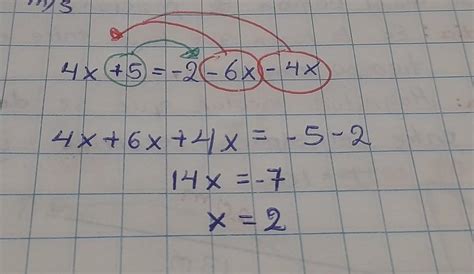 4x+5=-2-6x-4x
4x+6x+4x=-5-2
14x=-7
x=2